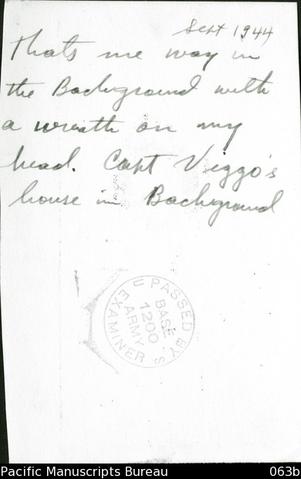 Sept 1944
Thats me way in
the Background with
a wreath on my
head. Capt Viggo's
house in Background
PASSED BY U S
BASE
1200
ARMY
EXAMINER
Pacific Manuscripts Bureau 063b